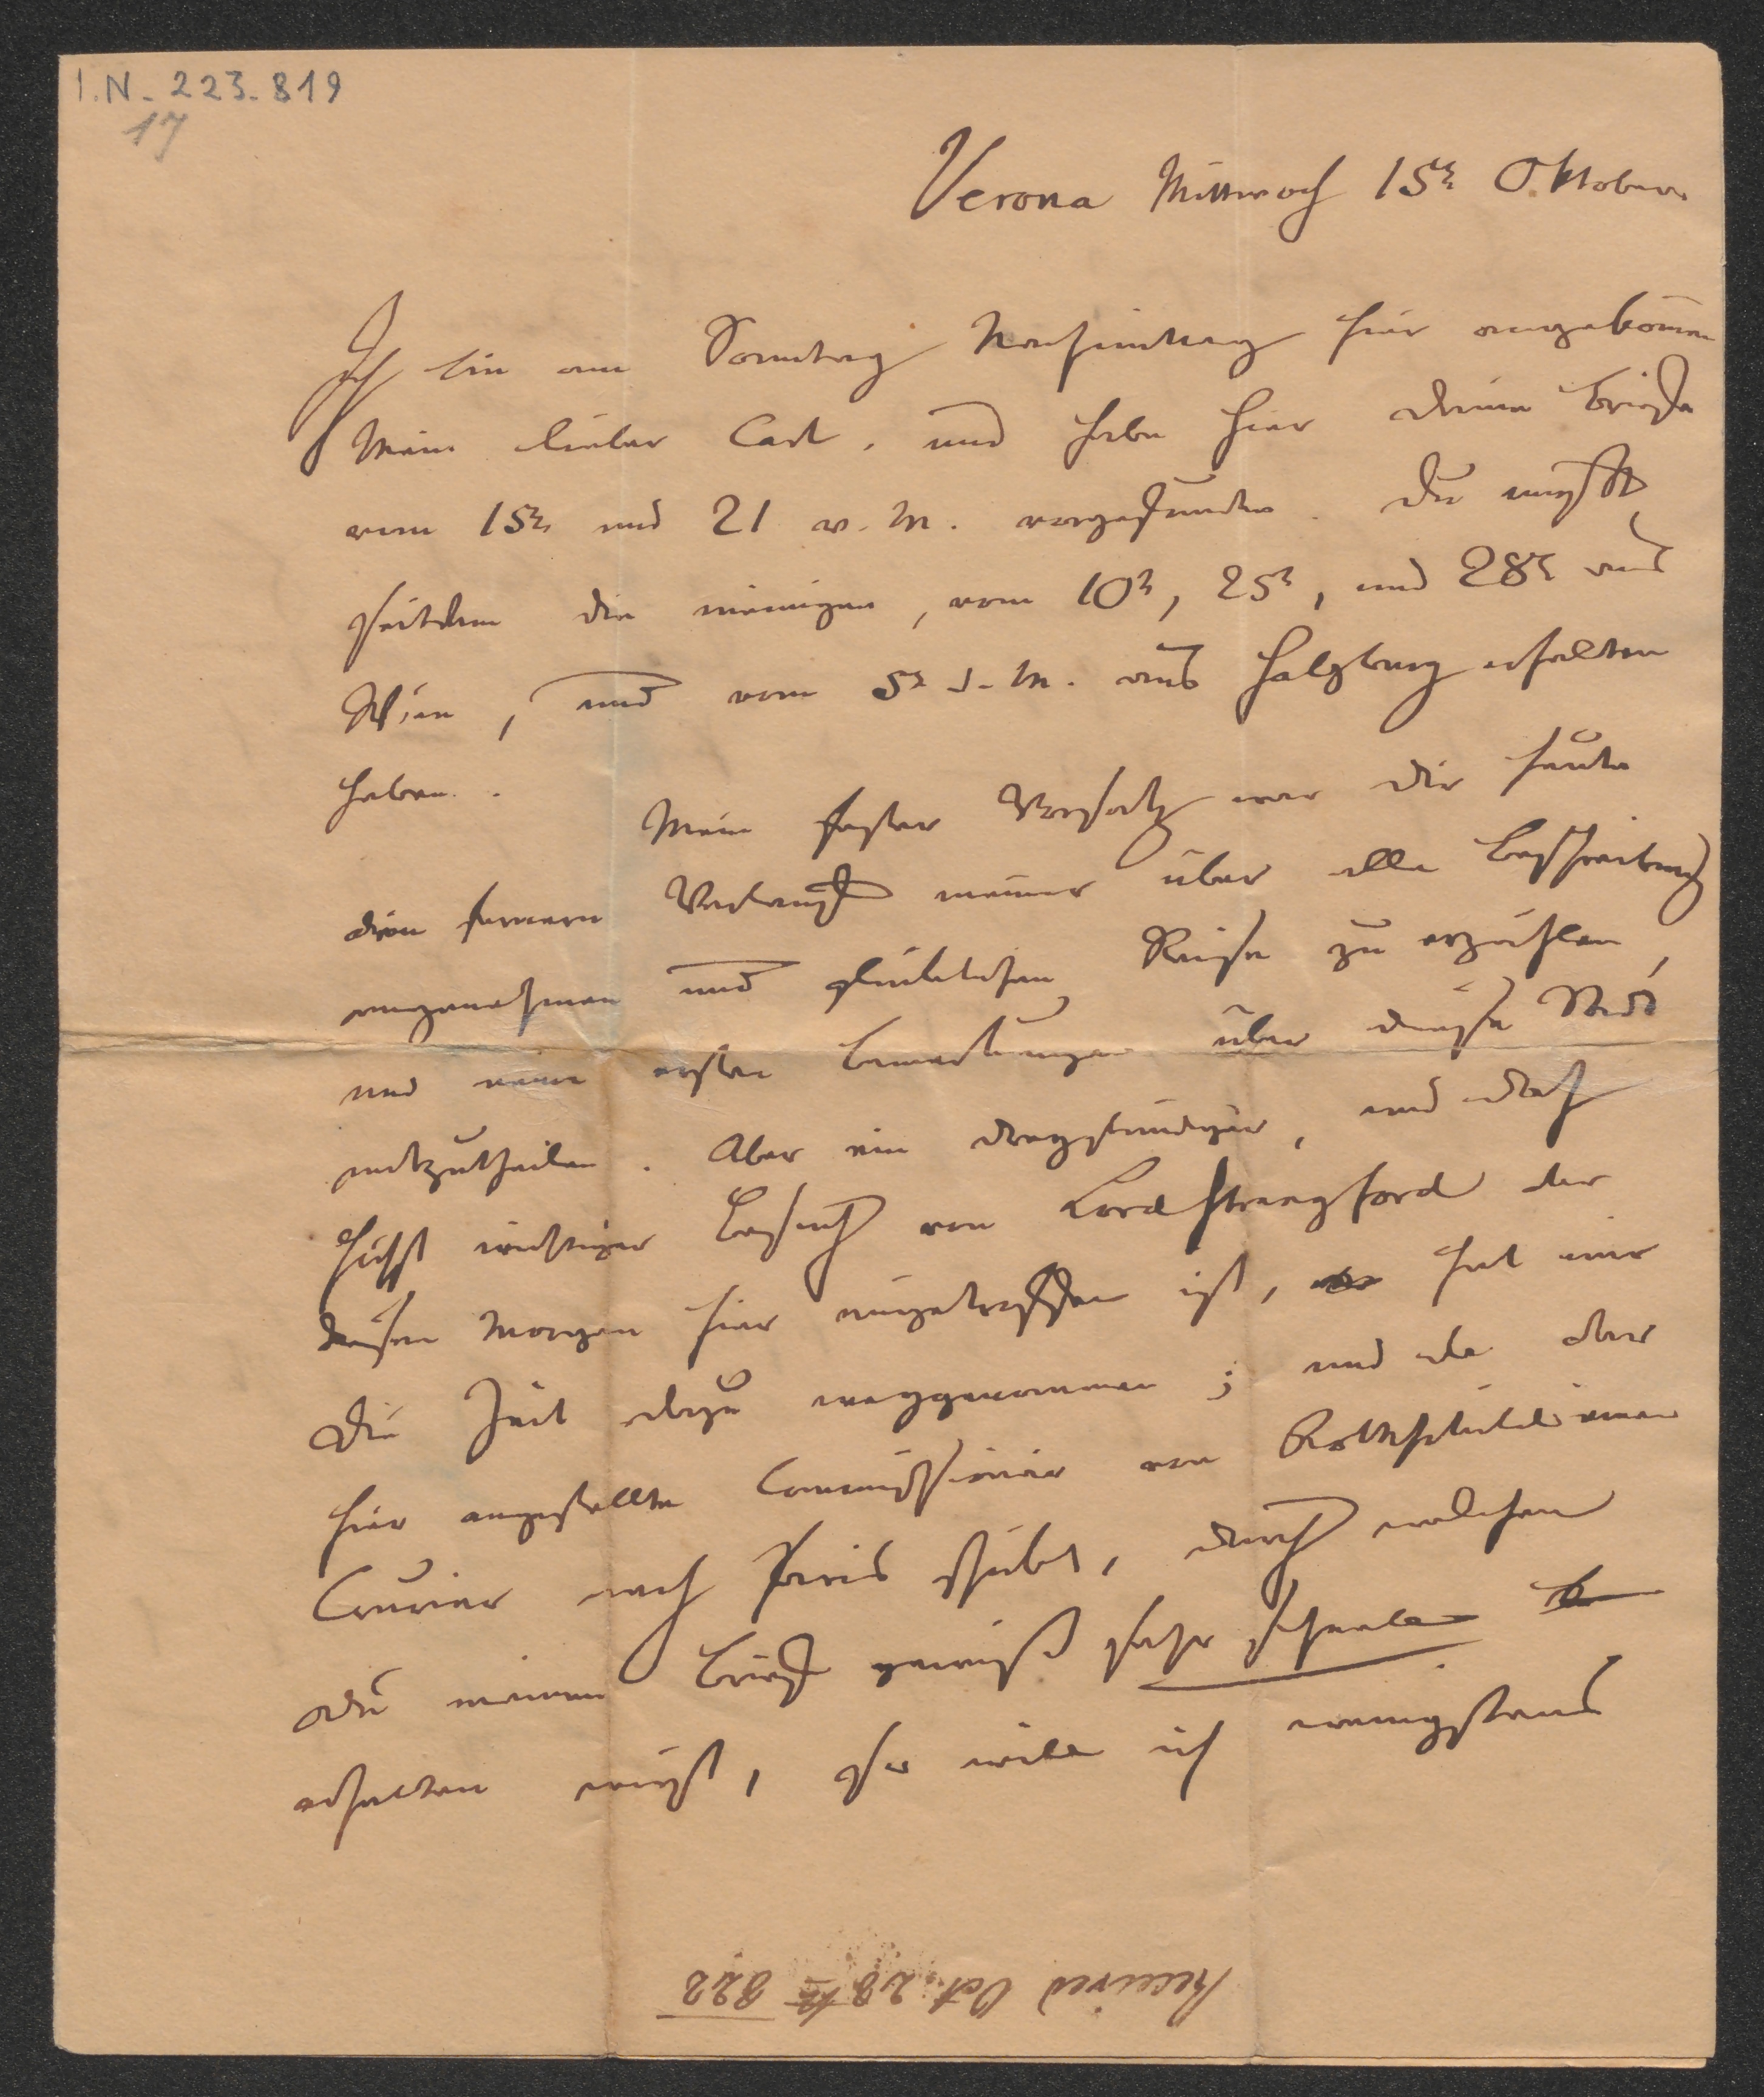 I.N. 223.819
17
Verona Mittwoch 15t Oktober.
Ich bin am Sonntag Nachmittag hier angekomen
Mein lieber Carl, und habe hier deine Briefe
vom 15t und 21 v. M. vorgefunden. Du mußt
seitdem die meinigen, vom 10t, 25t, und 28t aus
Wien, und vom 5t d. M. aus Salzburg erhalten
haben.
Mein fester Vorsatz war dir heute
den fernern Verlauf meiner über alle Beschreibung
angenehmen und glücklichen Reise zu erzählen,
und meine ersten Bemerkungen über diese Stadt
mitzutheilen. Aber ein dreystündiger, und doch
höchst wichtiger Besuch von Lord Strangford der
diesen Morgen hier eingetroffen ist, hat mir
die Zeit dazu weggenommen; und da der
hier angestellte Commissionär von Rothschild einen
Courier nach Paris schickt, durch welchen
du meinen Brief gewiß sehr schnell
erhalten wirst, so will ich wenigstens
Received Oct. 28th 822